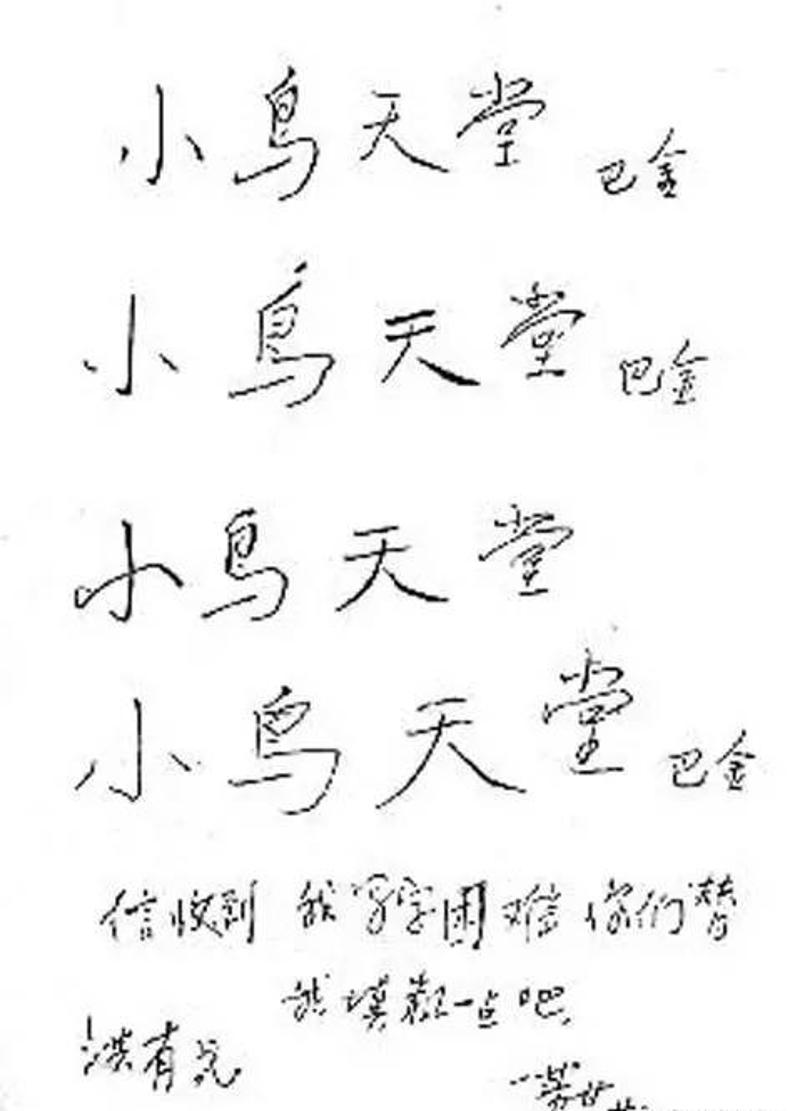 小鸟天堂 巴金
小鸟天堂 巴金
小鸟天堂
小鸟天堂 巴金
信收到 我写字困难 你们替
我填粗一点吧